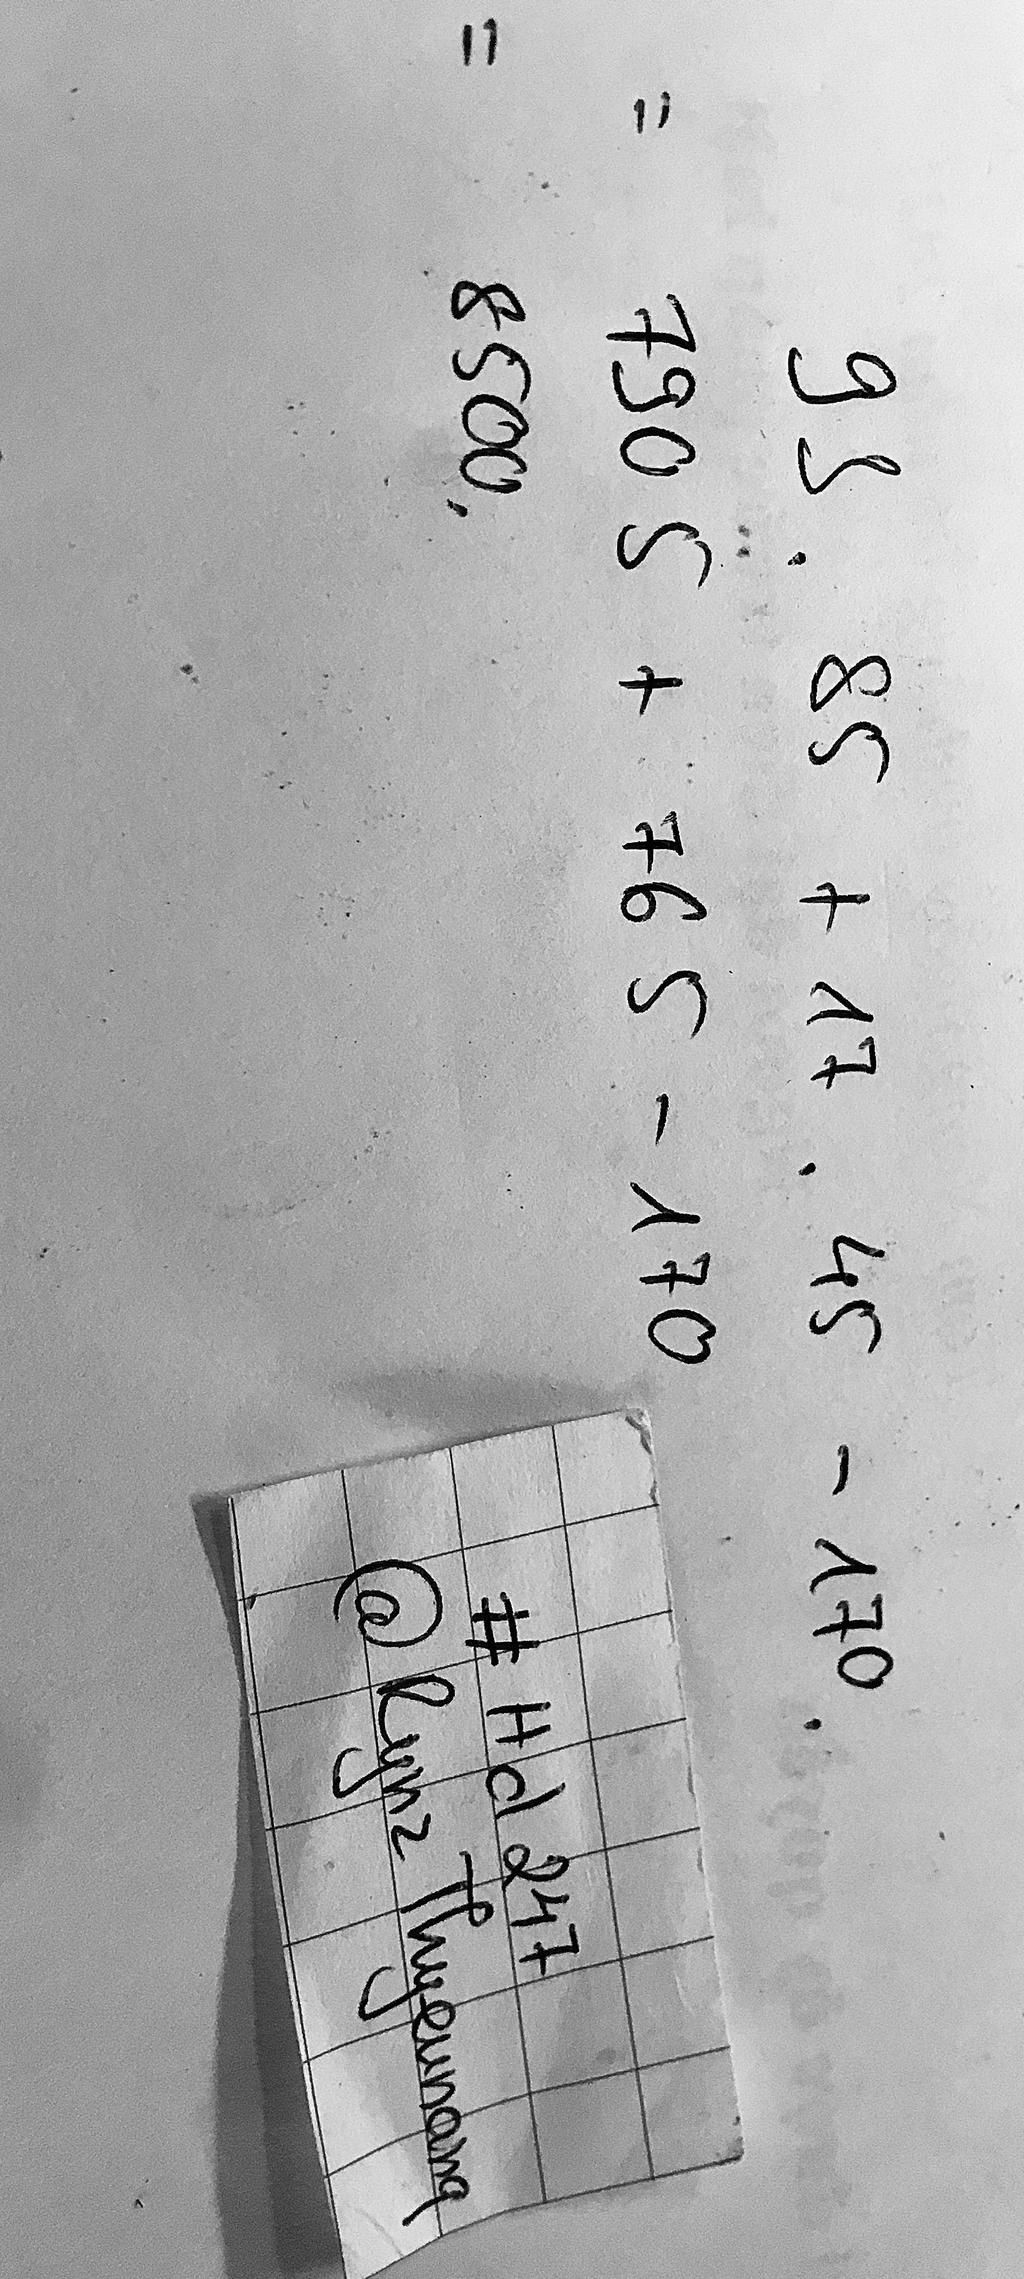 93 . 85 + 17 . 45 - 170 .
= 7905 + 765 - 170
= 8500.
# Hd 247